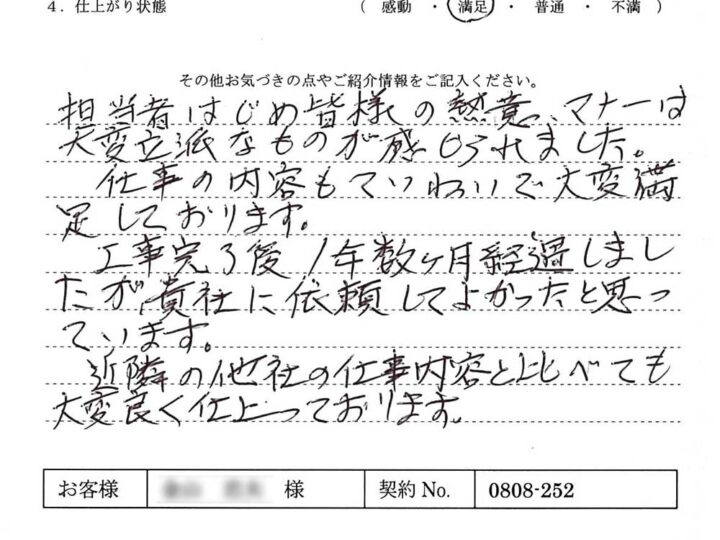 4．仕上がり状態 （ 感動 ・ 満足 ・ 普通 ・ 不満 ）
その他お気づきの点やご紹介情報をご記入ください。
担当者はじめ皆様の熱意、マナーは
大変立派なものが感じられました。
仕事の内容もていねいで大変満
足しております。
工事完了後1年数ヶ月経過しまし
たが、貴社に依頼してよかったと思っ
ています。
近隣の他社の仕事内容と比べても
大変良く仕上っております。
お客様 様 契約 No. 0808-252